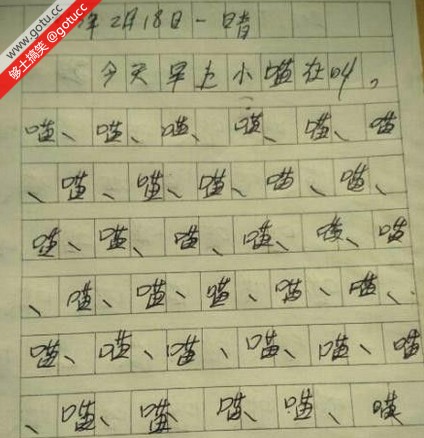 www.gotucc.com
够土搞笑 @gotucc
年2月18日一晴
今天早上小喵在叫,
喵、喵、喵、喵、喵、喵
、喵、喵、喵、喵、喵、
喵、喵、喵、喵、喵、喵
、喵、喵、喵、喵、喵、
喵、喵、喵、喵、喵、喵
、喵、喵、喵、喵、喵